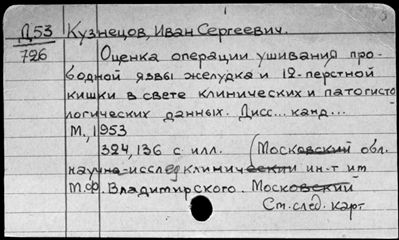 Д53 Кузнецов, Иван Сергеевич.
726 Оценка операции ушивания про-
бодной язвы желудка и 12-перстной
кишки в свете клинических и патогисто
логических данных. Дисс... канд...
М., 1953
324, 136 с илл. (Московский обл.
научно-исслед клинический ин-т им
М.Ф. Владимирского. Московский
См. след. карт